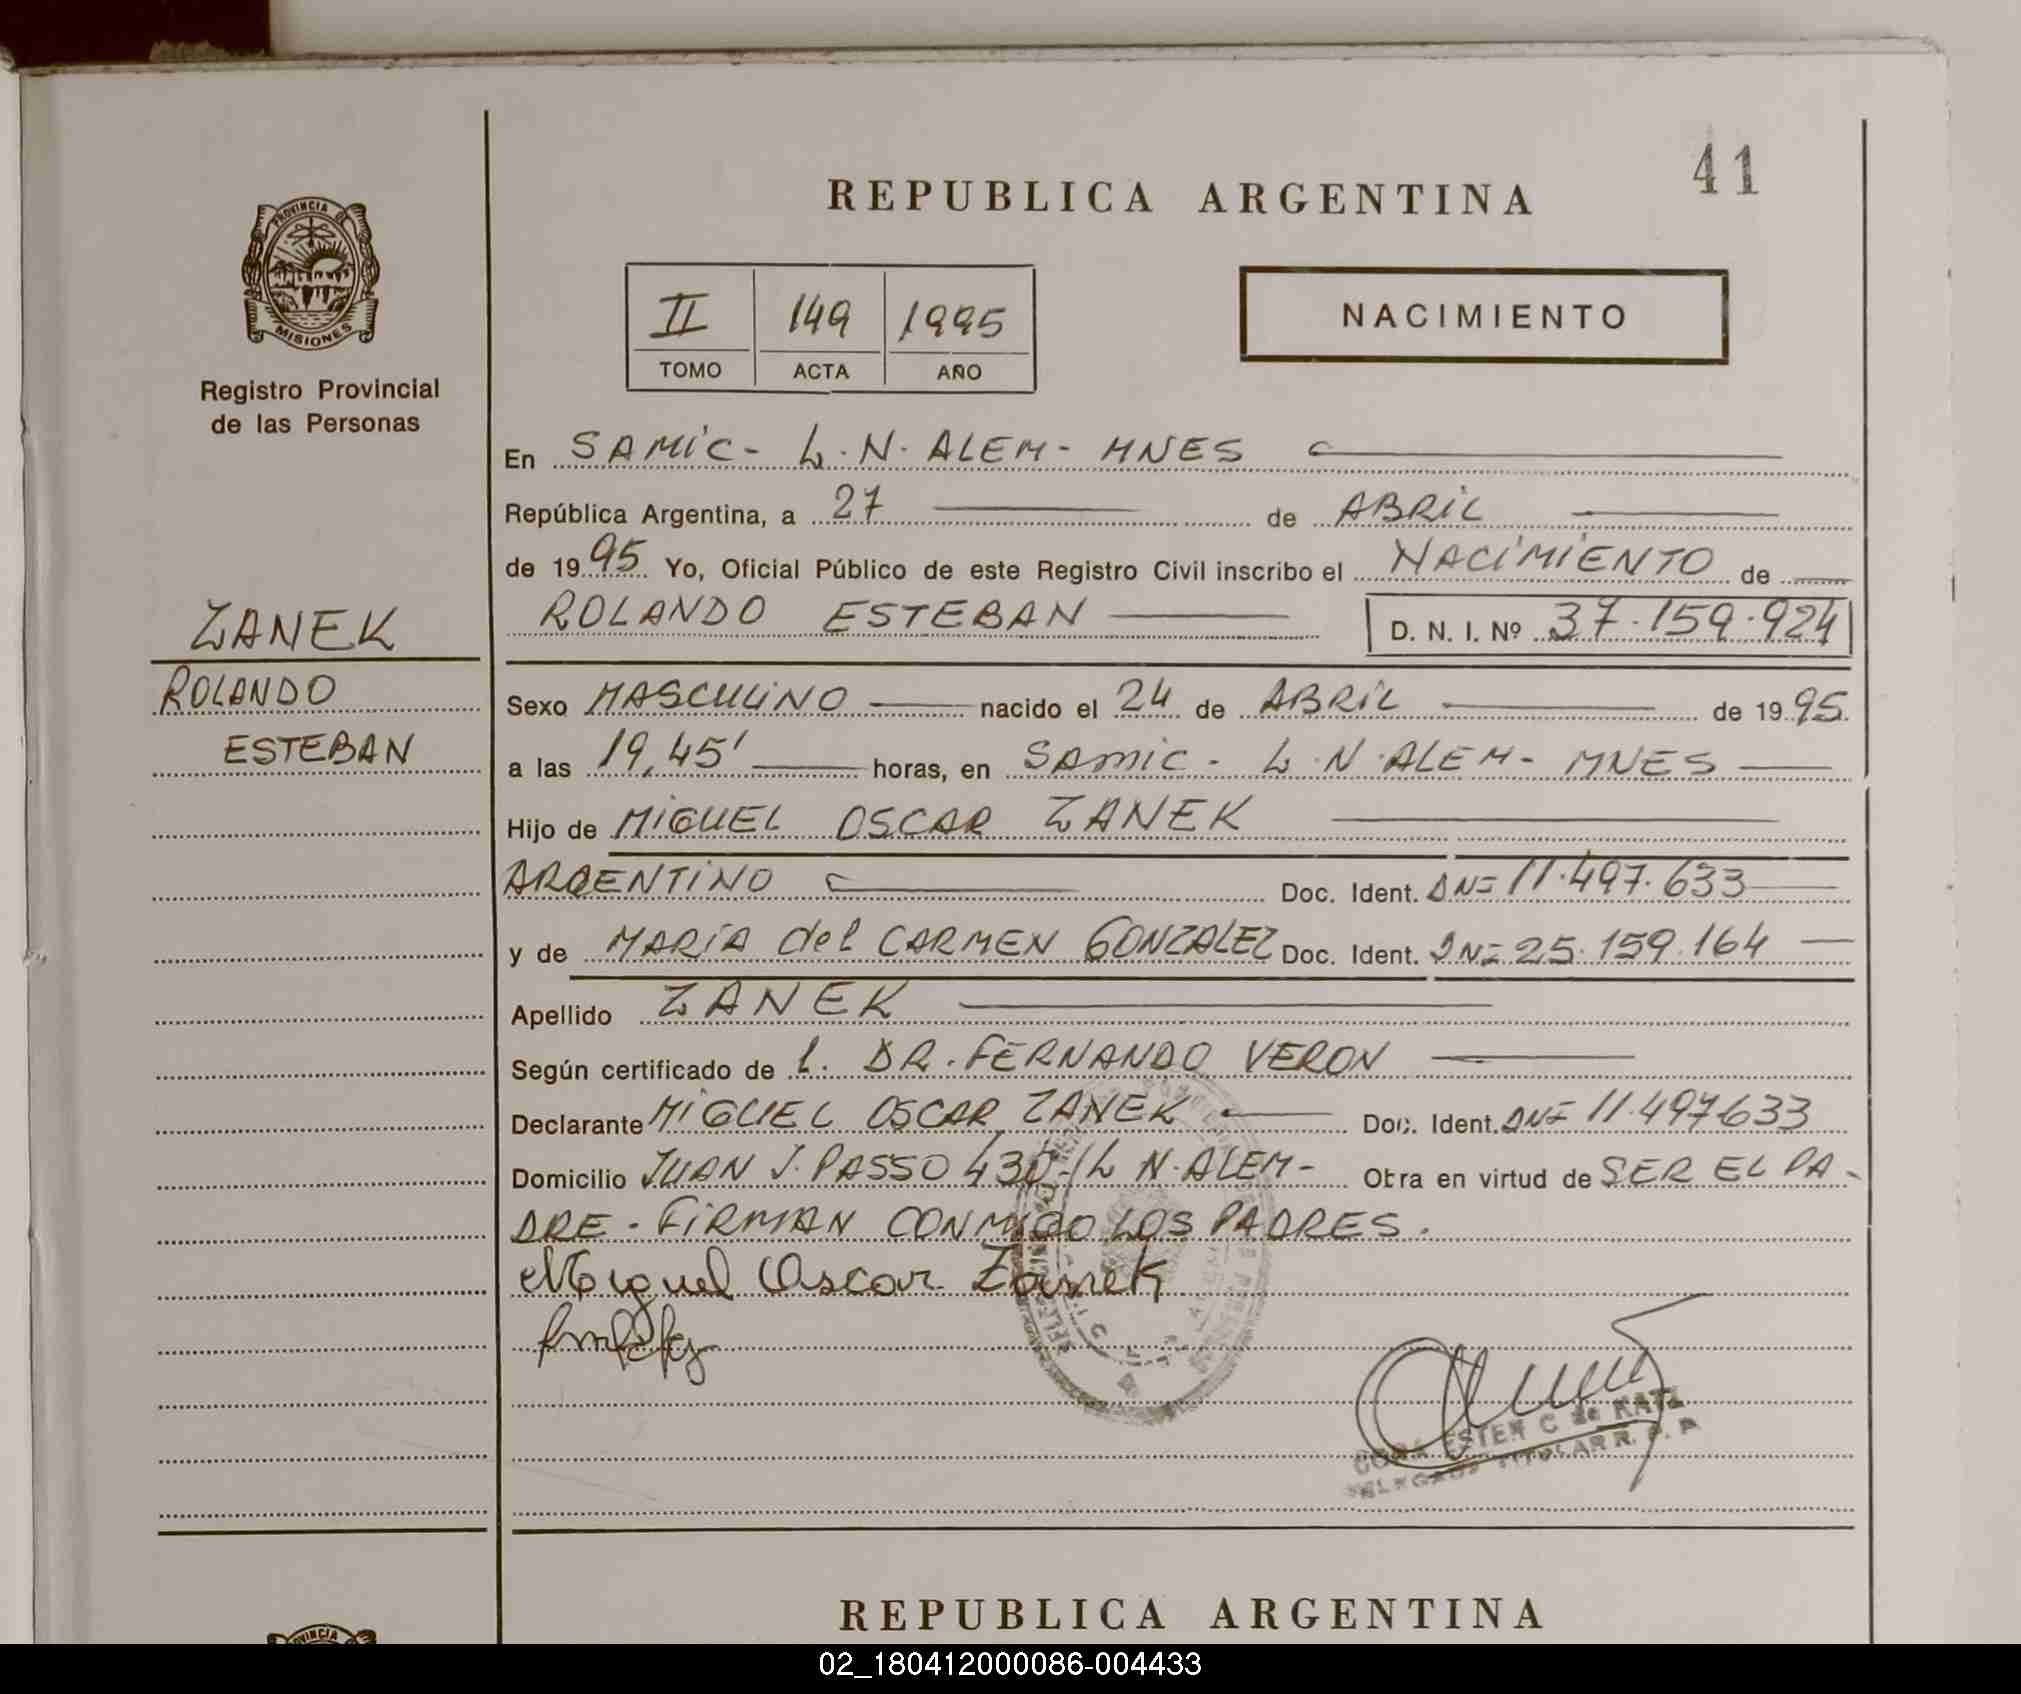 41
REPUBLICA ARGENTINA
PROVINCIA DE
MISIONES
Registro Provincial
de las Personas
II 149 1995
TOMO ACTA AÑO
NACIMIENTO
En SAMIC- L.N. ALEM- MNES
República Argentina, a 27 de ABRIL
de 1995 Yo, Oficial Público de este Registro Civil inscribo el NACIMIENTO de
ROLANDO ESTEBAN D. N. I. Nº 37.159.924
ZANEK
ROLANDO
ESTEBAN
Sexo MASCULINO nacido el 24 de ABRIL de 1995
a las 19,45' horas, en SAMIC- L.N. ALEM- MNES
Hijo de MIGUEL OSCAR ZANEK
ARGENTINO Doc. Ident. DN= 11.497.633
y de MARIA del CARMEN GONZALEZ Doc. Ident. DN= 25.159.164
Apellido ZANEK
Según certificado de L. DR. FERNANDO VERON
Declarante MIGUEL OSCAR ZANEK Doc. Ident. DN= 11.497633
Domicilio JUAN J. PASSO 430-/L N. ALEM- Obra en virtud de SER EL PA-
DRE. FIRMAN CONMIGO LOS PADRES.
Miguel Oscar Zanek
ESTER C de KATZ
TITULAR R. P. P.
REPUBLICA ARGENTINA
02_180412000086-004433